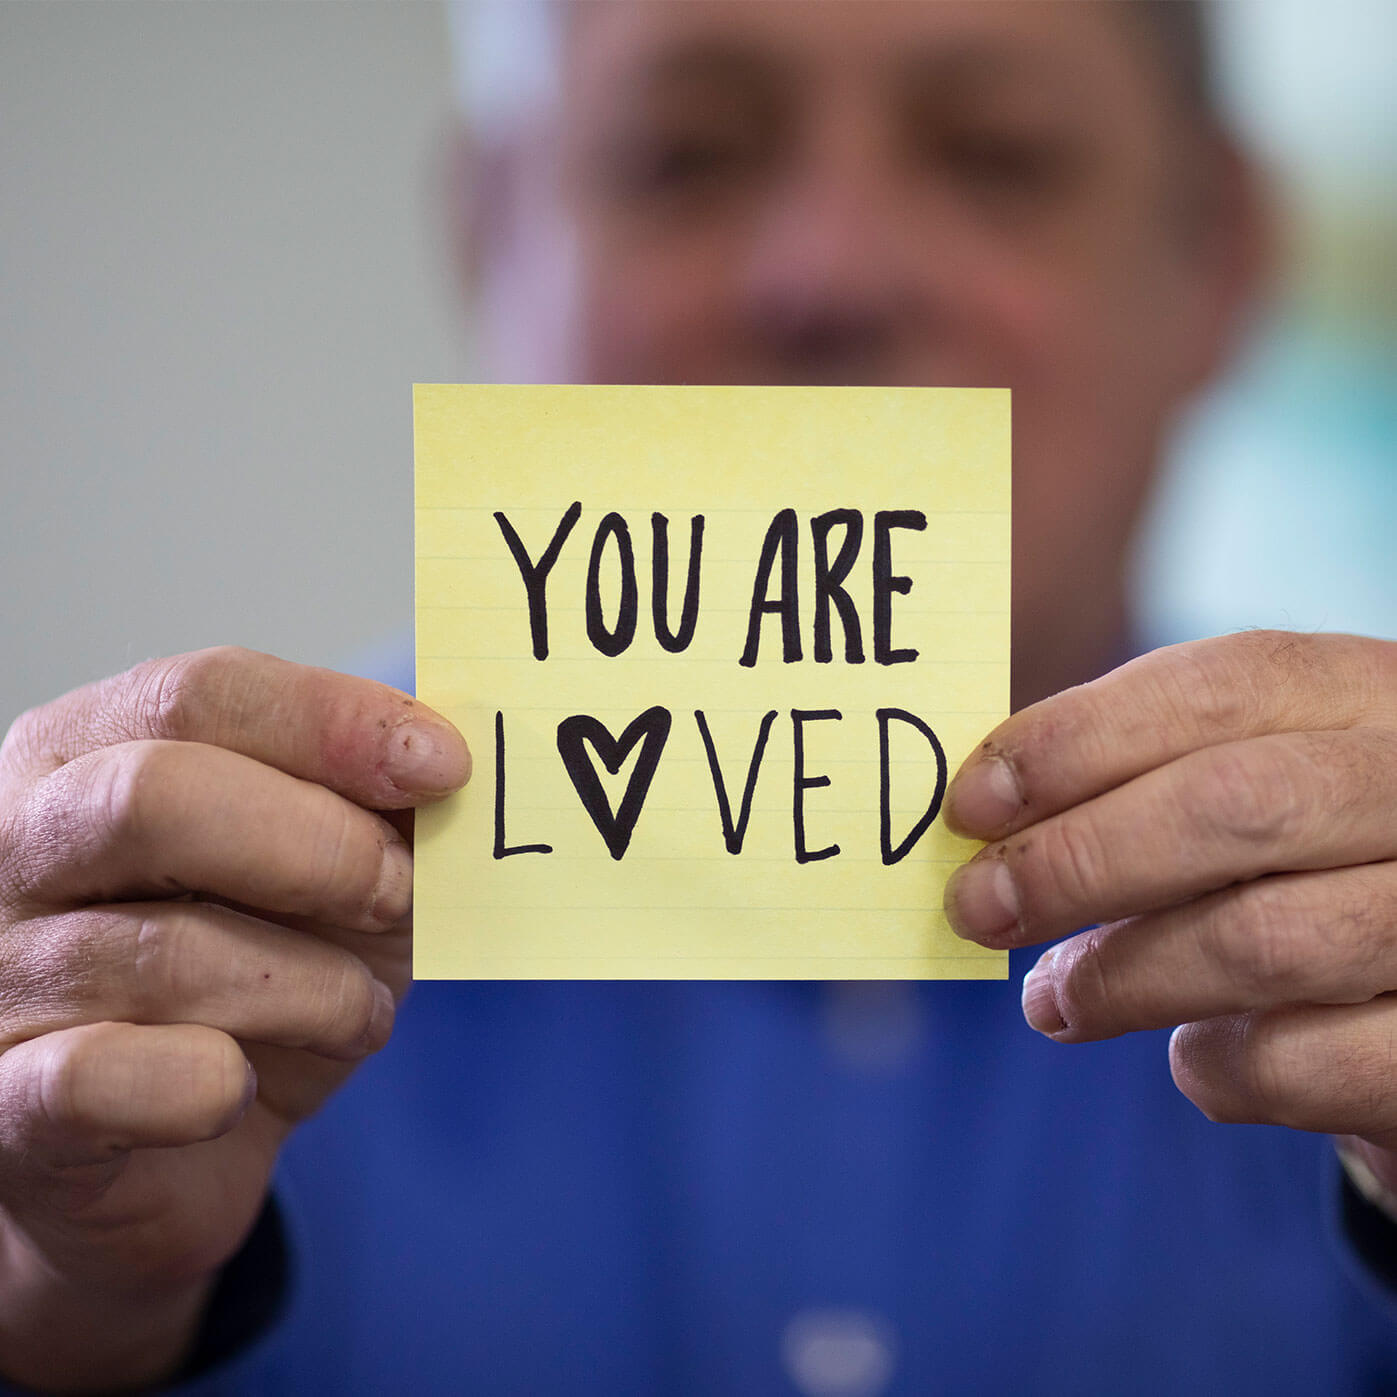 YOU ARE
L♥VED